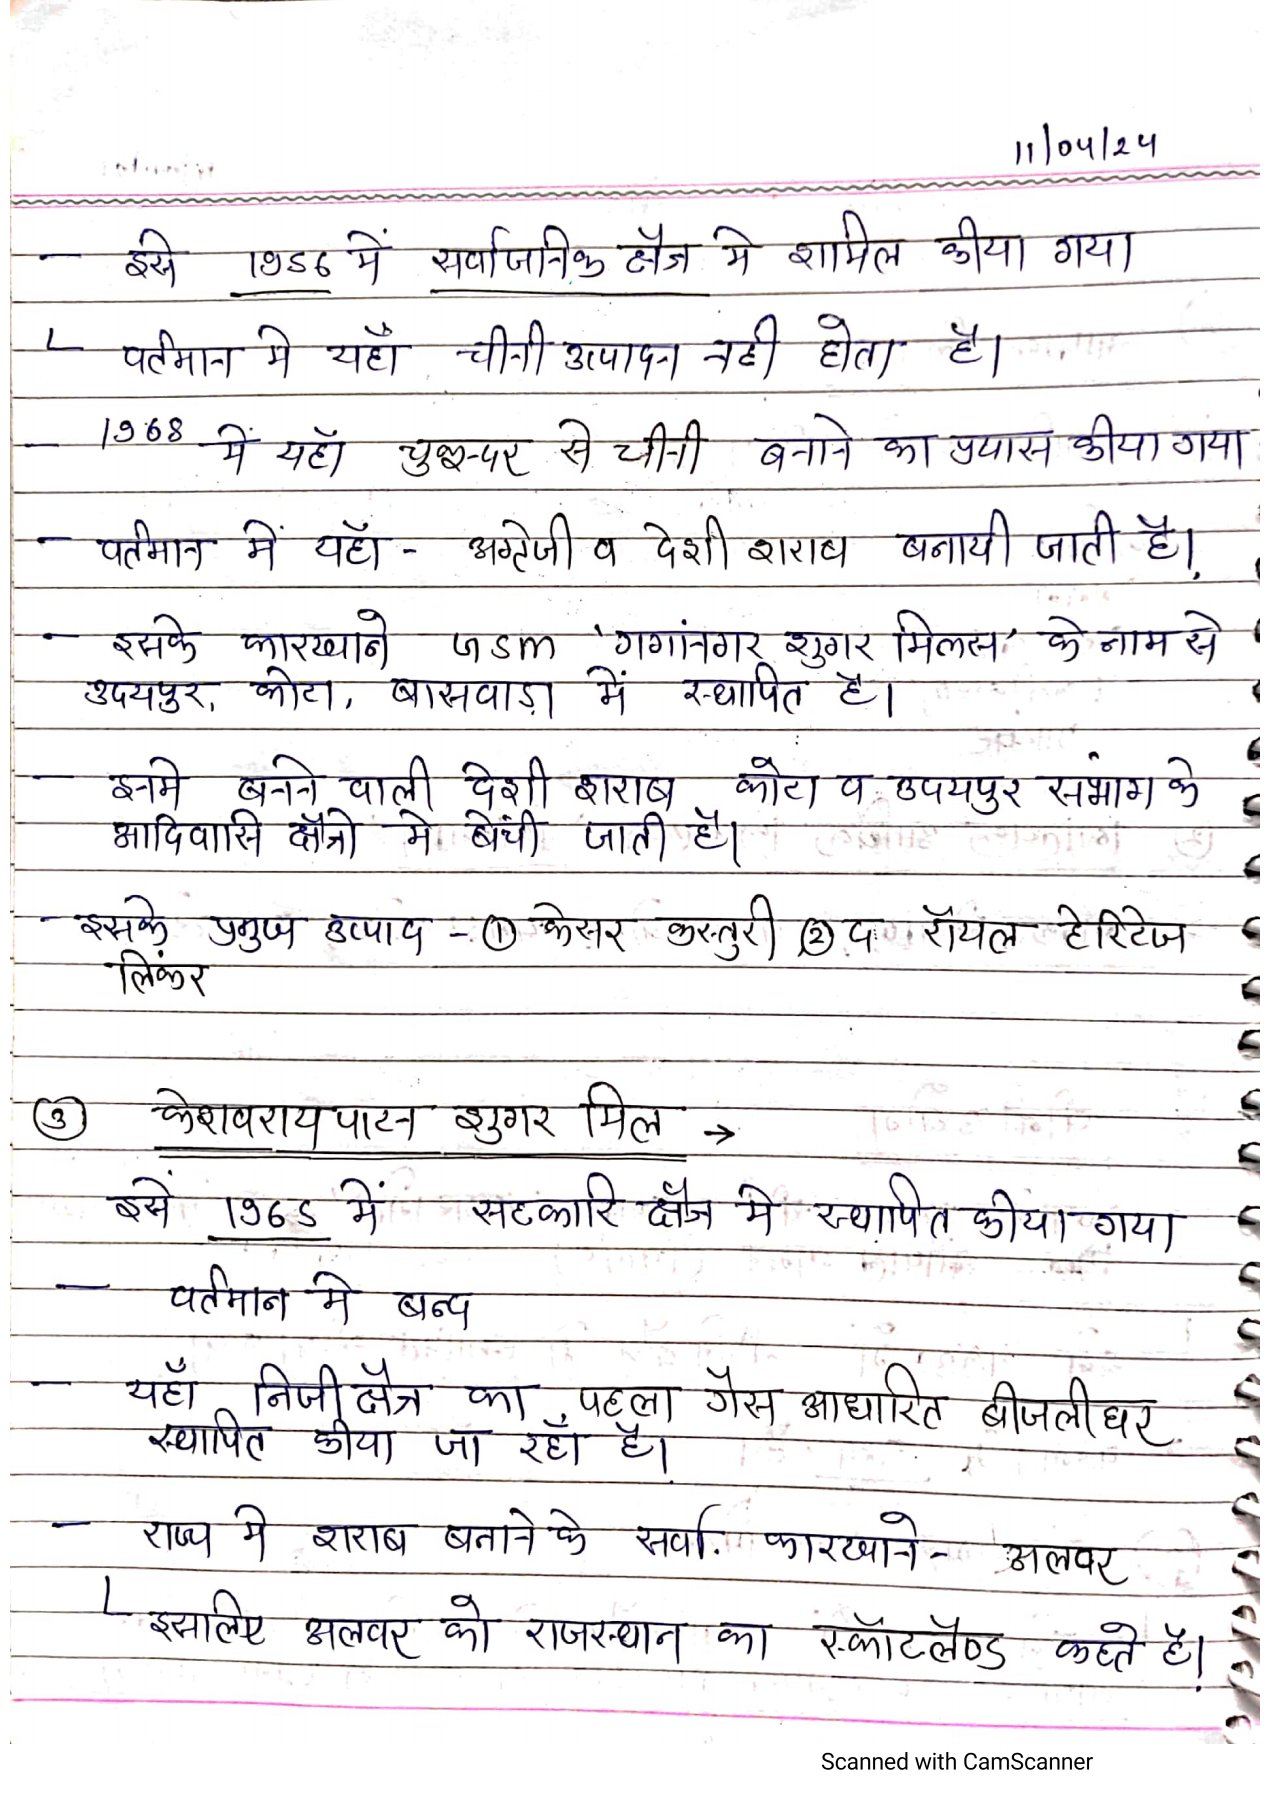 11/04/24
- इसे 1956 में सर्वाजनिक क्षैत्र मे शामिल कीया गया
└ वर्तमान मे यहाँ चीनी उत्पादन नही होता है।
- 1968 में यहाँ चुकन्दर से चीनी बनाने का प्रयास कीया गया
- वर्तमान में यहाँ - अग्रेजी व देशी शराब बनायी जाती है।
- इसके कारखाने GSM 'गगांनगर शुगर मिलस' के नाम से
उदयपुर, कोटा, बासवाड़ा में स्थापित है।
- इनमे बनने वाली देशी शराब कोटा व उदयपुर संभाग के
आदिवासि क्षैत्रो मे बेची जाती है।
- इसके प्रमुख उत्पाद - ① केसर कस्तुरी ② द रॉयल हेरिटेज
लिकंर
③ केशवरायपाटन शुगर मिल →
इसे 1965 में सहकारि क्षैत्र मे स्थापित कीया गया
- वर्तमान मे बन्द
- यहाँ निजी क्षैत्र का पहला गैस आधारित बीजलीघर
स्थापित कीया जा रहाँ है।
- राज्य मे शराब बनाने के सर्वा. कारखाने - अलवर
└ इसलिए अलवर को राजस्थान का स्कॉटलैण्ड कहते है।
Scanned with CamScanner